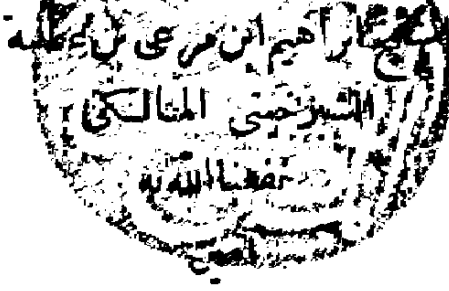 ابراهيم ابن مرعى بن عطيه
الشبرخيتى المالكى
نفعنا الله به